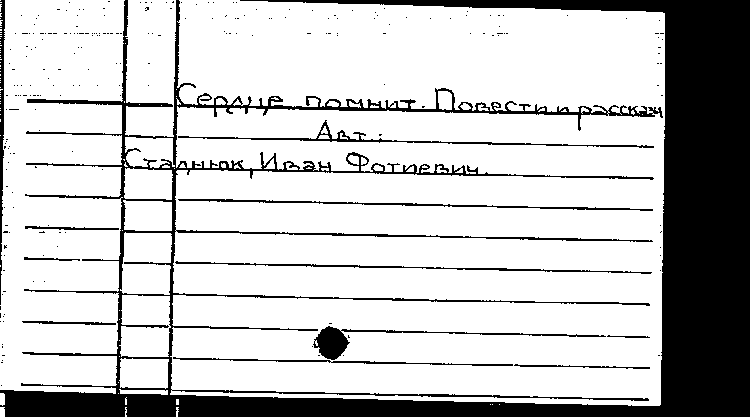 Сердце помнит. Повести и рассказы
Авт.:
Стаднюк, Иван Фотиевич.